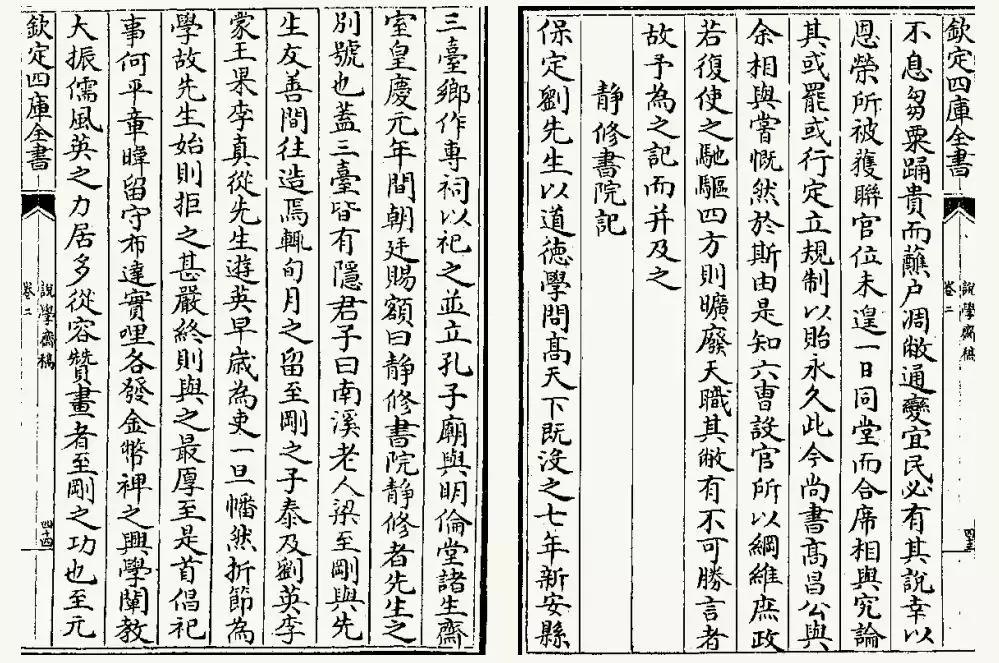 欽定四庫全書
說學齋稿
卷二
不息芻粟踊貴而蘸户凋敝通變宜民必有其說幸以
恩榮所被獲聯官位未遑一日同堂而合席相與究論
其或罷或行定立規制以貽永久此今尚書髙昌公與
余相與嘗慨然於斯由是知六曹設官所以綱維庶政
若復使之馳驅四方則曠廢天職其敝有不可勝言者
故予為之記而并及之
靜修書院記
保定劉先生以道德學問髙天下既沒之七年新安縣
三臺鄉作專祠以祀之並立孔子廟與明倫堂諸生齋
室皇慶元年間朝廷賜額曰靜修書院靜修者先生之
别號也蓋三臺皆有隱君子曰南溪老人梁至剛與先
生友善間往造焉輒旬月之留至剛之子泰及劉英李
蒙王果李真從先生遊英早歳為吏一旦幡然折節為
學故先生始則拒之甚嚴終則與之最厚至是首倡祀
事何平章暐留守布達實哩各發金幣禆之興學闡教
大振儒風英之力居多從容贊畫者至剛之功也至元
欽定四庫全書
說學齋稿
卷二
四十四